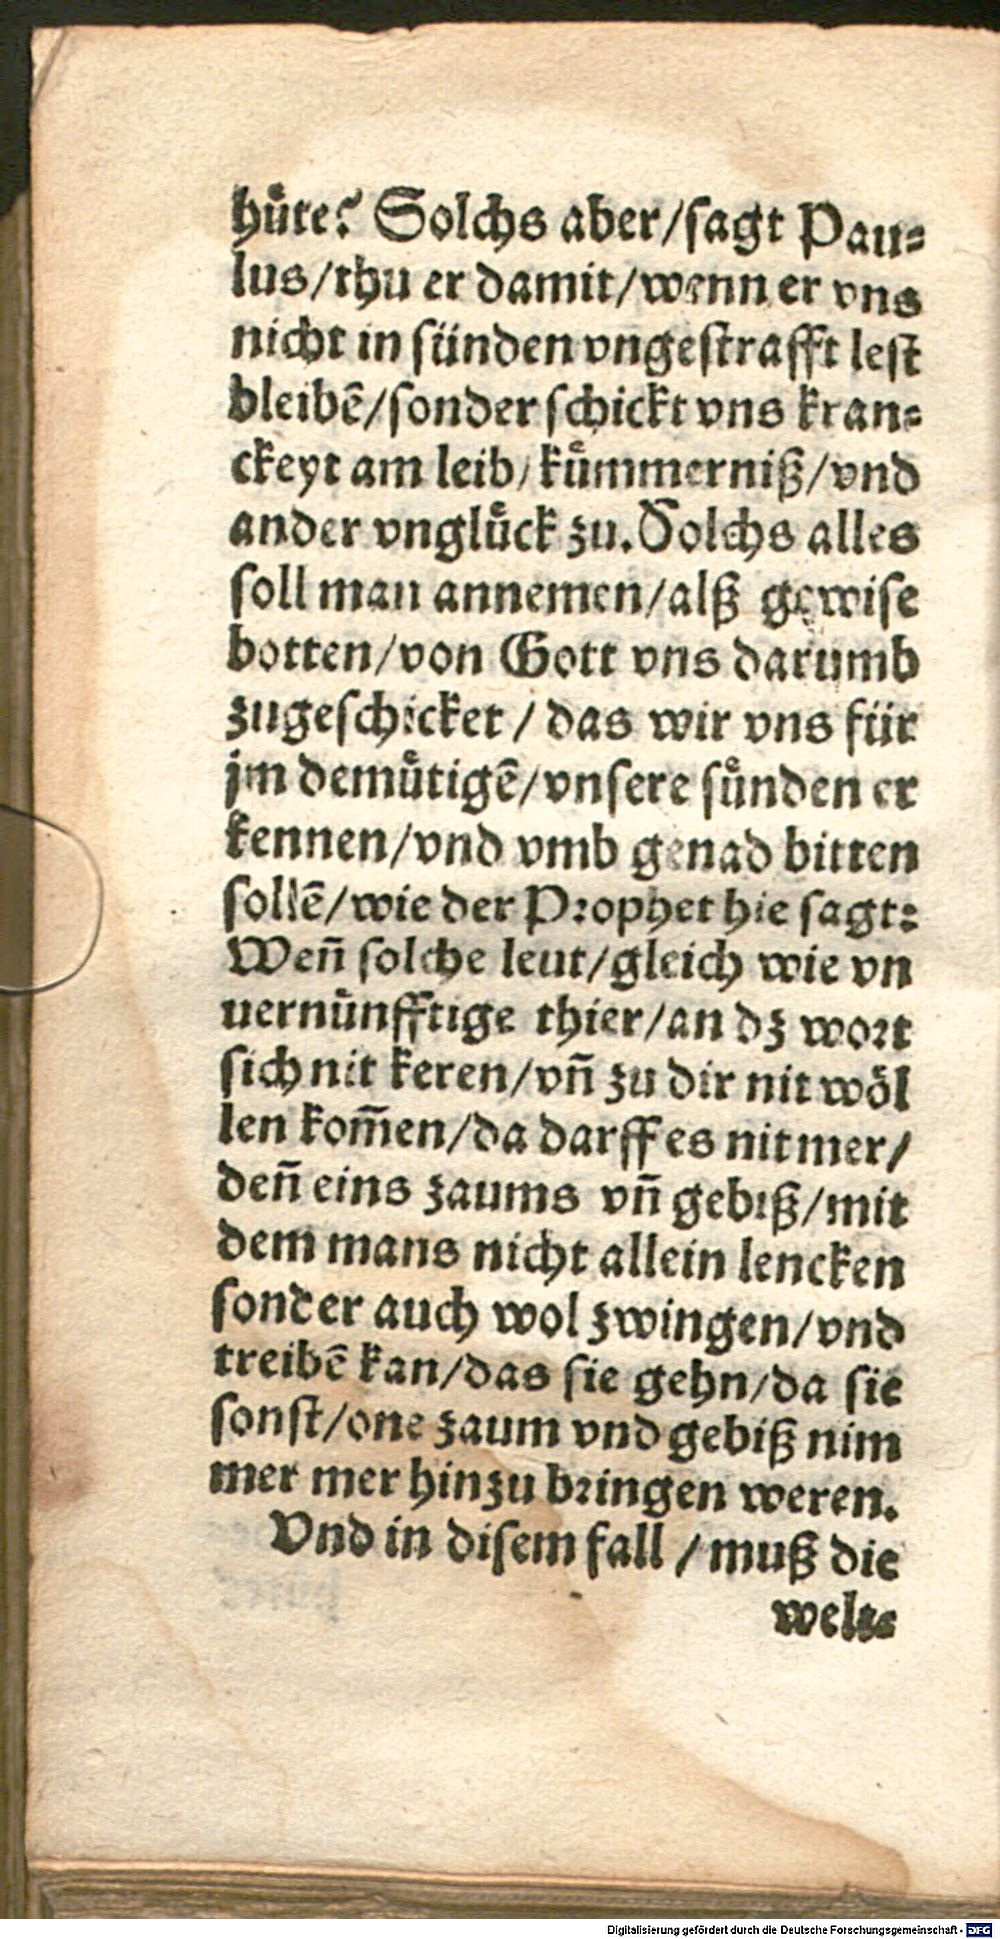 hůte? Solchs aber/sagt Pau⸗
lus/thu er damit/wenn er vns
nicht in sünden vngestrafft lest
bleibẽ/sonder schickt vns kran⸗
ckeyt am leib/ kům̈merniß/vnd
ander vnglůck zu. Solchs alles
soll man annemen/alß gewise
botten/von Gott vns darumb
zugeschicket / das wir vns für
jm demůtigẽ/vnsere sůnden er
kennen/vnd vmb genad bitten
sollẽ/wie der Prophet hie sagt:
Wen̄ solche leut/gleich wie vn
uernůnfftige thier/an dz wort
sich nit keren/vn̄ zu dir nit wöl
len kom̄en/da darff es nit mer/
den̄ eins zaums vn̄ gebiß/mit
dem mans nicht allein lencken
sonder auch wol zwingen/vnd
treibẽ kan/das sie gehn/da sie
sonst/one zaum vnd gebiß nim
mer mer hinzu bringen weren.
Vnd in disem fall / muß die
welt⸗
Digitalisierung gefördert durch die Deutsche Forschungsgemeinschaft - DFG